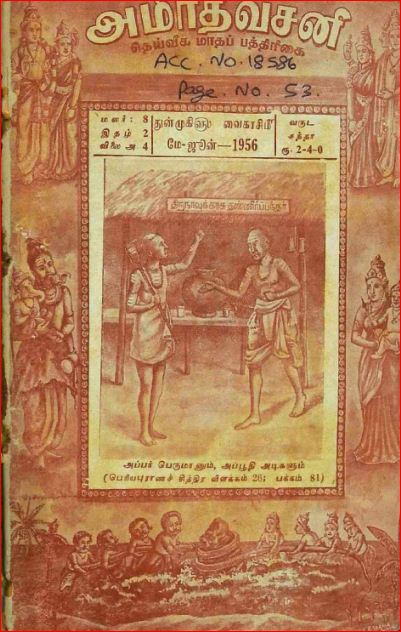 அமரதவசனி
தெய்வீக மாதப் பத்திரிகை
ACC. NO. 18586
Page. No. 53.
மலர்: 8
இதழ் 2
விலை அ 4
துன்முகிளு வைகாசிமீ
மே-ஜூன்—1956
வருட
சந்தா
ரூ. 2-4-0
திருநாவுக்கரசு தண்ணீர்ப்பந்தர்
அப்பர் பெருமானும், அப்பூதி அடிகளும்
(பெரியபுராணச் சித்திர விளக்கம் 26; பக்கம் 81)